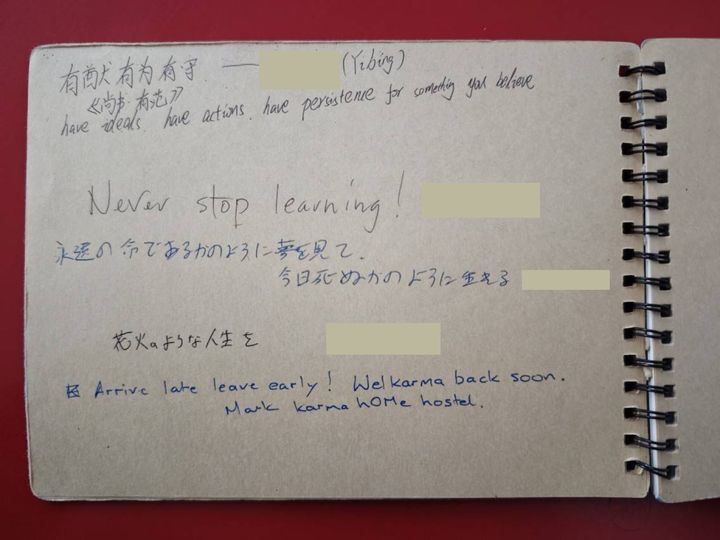 有猷有为有守 —— (Yibing)
《尚书·有范》
have ideals. have actions. have persistence for something you believe
Never stop learning!
永遠の命であるかのように夢を見て、
今日死ぬかのように生きる
花火のような人生を
Arrive late leave early! Welkarma back soon.
Mark karma hOMe hostel.